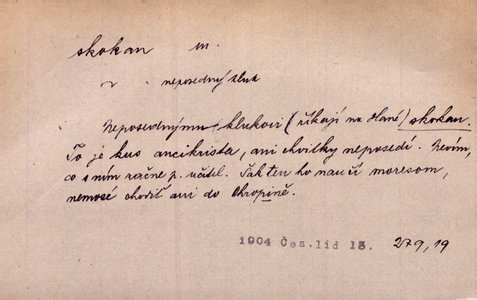 skokan m.
neposedný kluk
Neposednýmu klukovi (říkají na Hané) skokan.
To je kus ancikrista, ani chvilky neposedí. Nevím,
co s ním račne p. učitel. Šak ten ho naučí moresom,
nemosé chodit ani do Chropině.
1904 Čes. lid 13. 279, 19